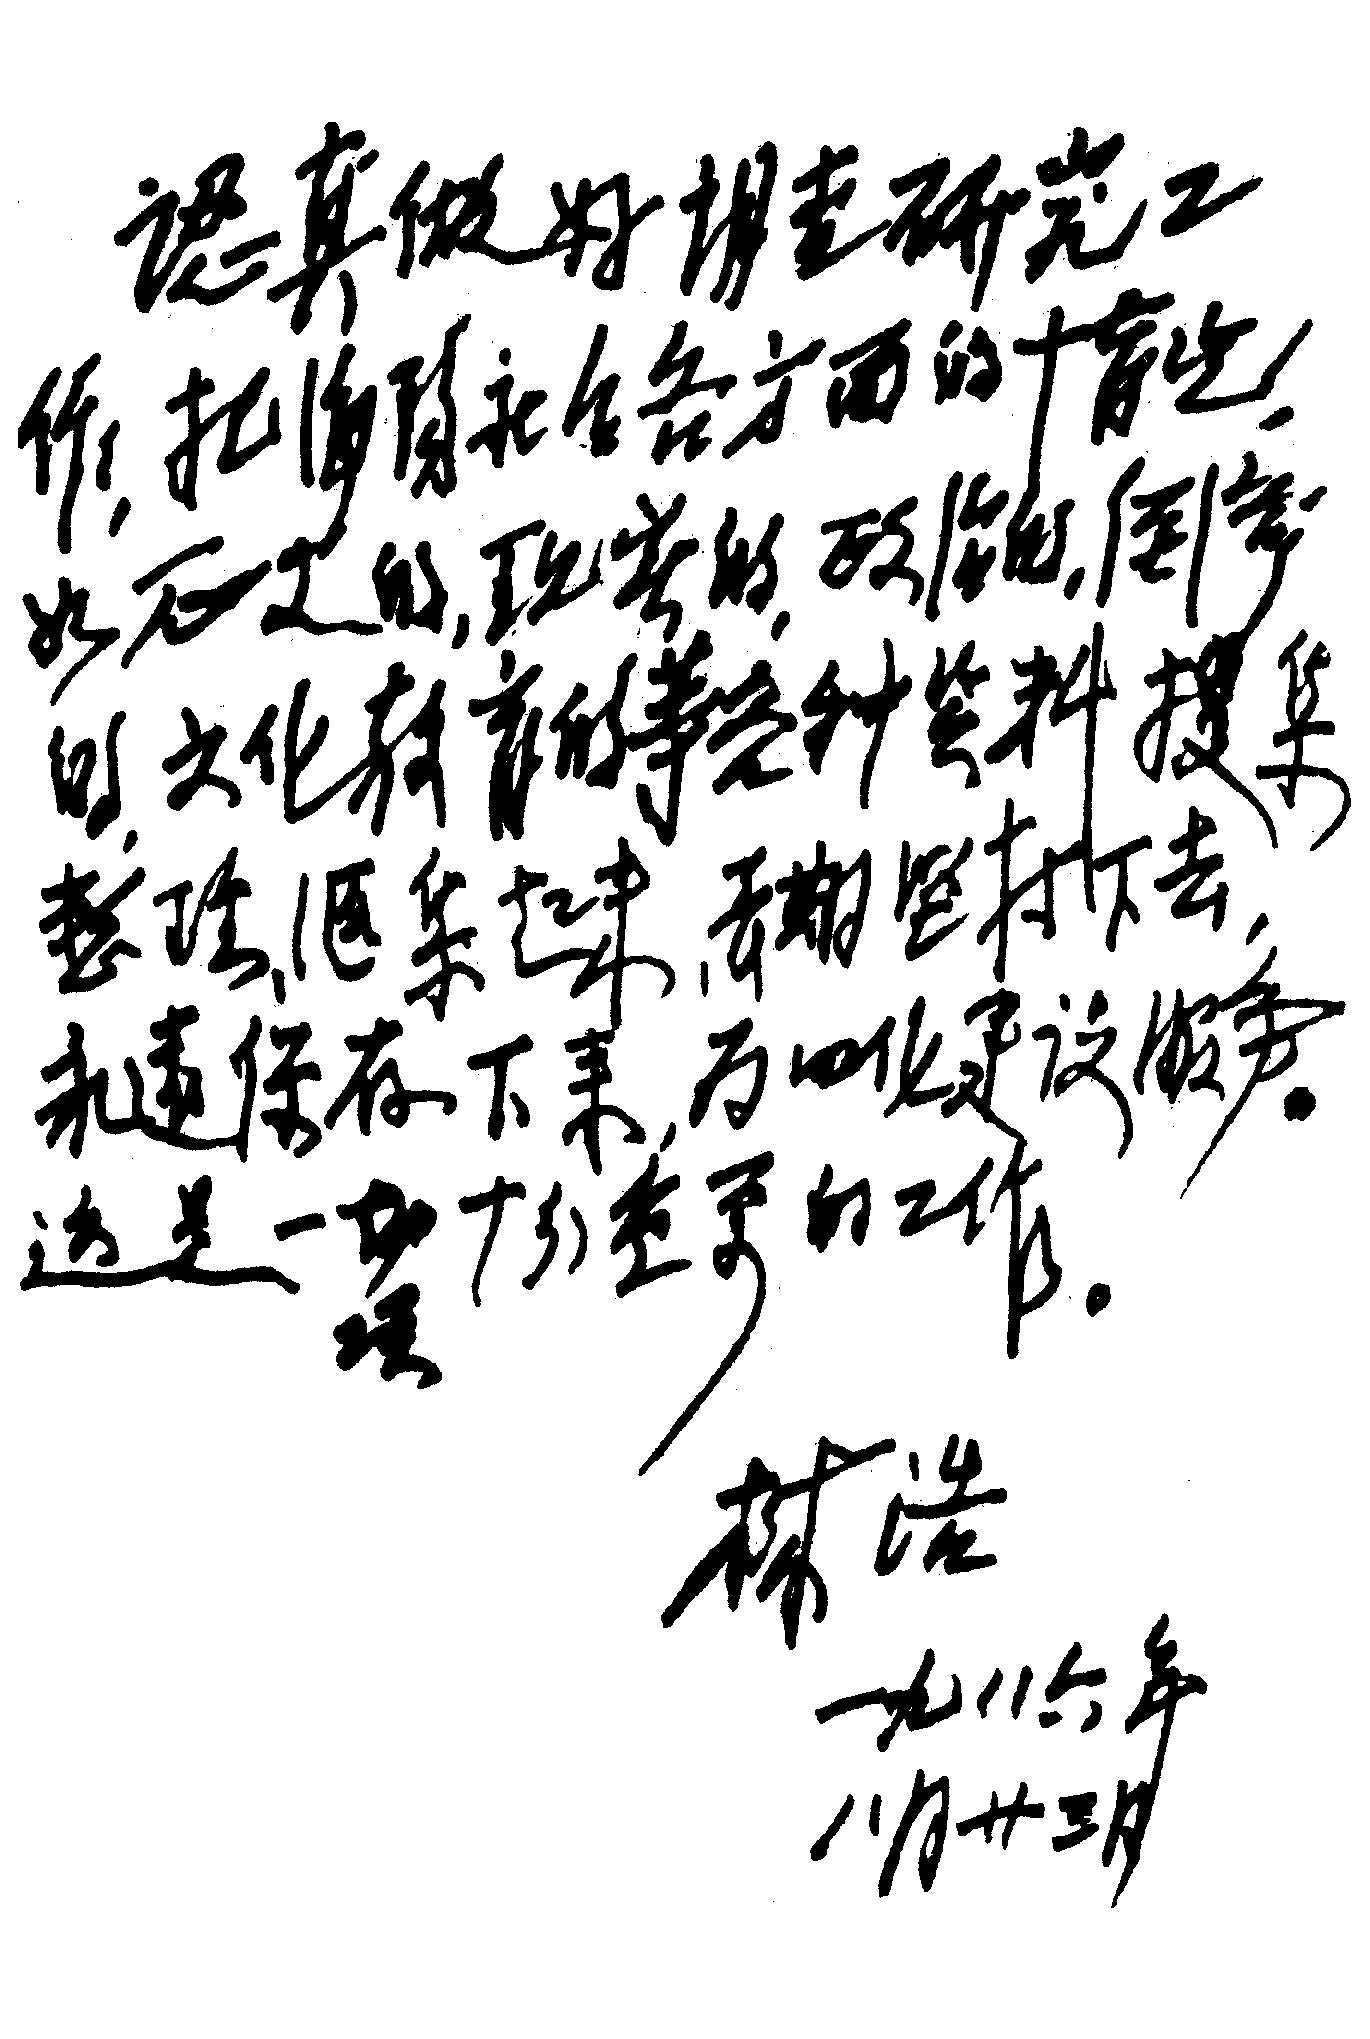 認真做好調查研究工
作，把海陽社会各方面的情况，
如历史的，现状的，政治的，经济
的，文化教育的等各种资料搜集
整理，汇集起来，長期坚持下去，
永远保存下来，为四化建设服务。
这是一项十分重要的工作。
林浩
一九八六年
八月廿三日